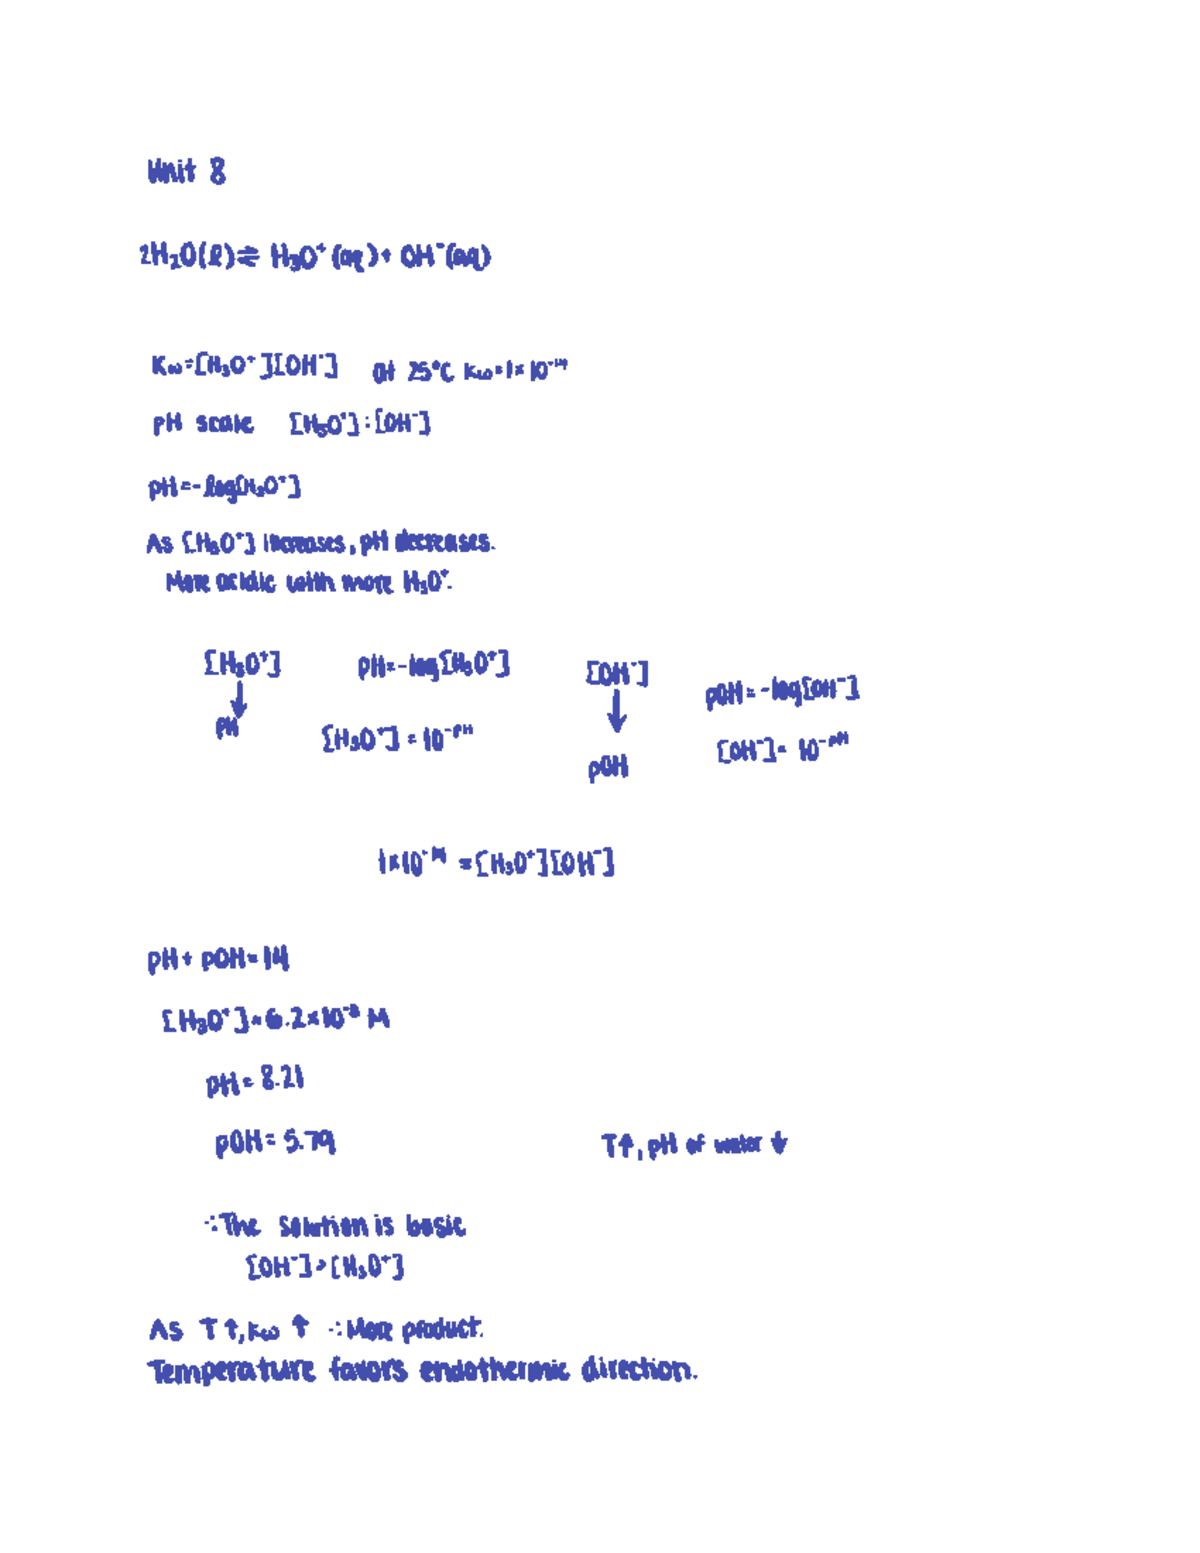 Unit 8
2H₂O(ℓ)⇌ H₃O⁺(aq)+ OH⁻(aq)
Kw=[H₃O⁺][OH⁻] at 25°C Kw=1×10⁻¹⁴
pH scale [H₃O⁺]:[OH⁻]
pH=-log[H₃O⁺]
As [H₃O⁺] increases, pH decreases.
More acidic with more H₃O⁺.
[H₃O⁺] pH=-log[H₃O⁺] [OH⁻] pOH=-log[OH⁻]
↓ ↓
pH [H₃O⁺]=10^-pH pOH [OH⁻]=10^-pOH
1×10⁻¹⁴ =[H₃O⁺][OH⁻]
pH+ pOH=14
[H₃O⁺]=6.2×10⁻⁹ M
pH= 8.21
pOH= 5.79 T↑, pH of water ↓
∴The solution is basic
[OH⁻]>[H₃O⁺]
As T↑,Kw ↑ ∴More product.
Temperature favors endothermic direction.